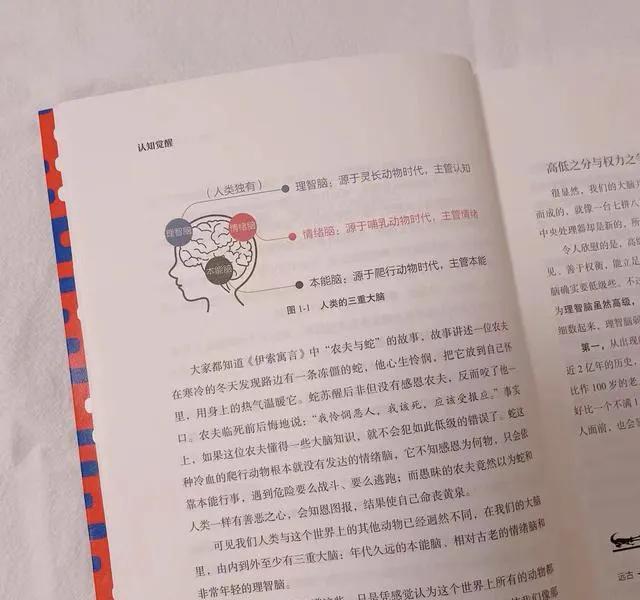 认知觉醒
（人类独有）
理智脑：源于灵长动物时代，主管认知
理智脑
情绪脑
情绪脑：源于哺乳动物时代，主管情绪
本能脑
本能脑：源于爬行动物时代，主管本能
图 1-1 人类的三重大脑
大家都知道《伊索寓言》中“农夫与蛇”的故事，故事讲述一位农夫
在寒冷的冬天发现路边有一条冻僵的蛇，他心生怜悯，把它放到自己怀
里，用身上的热气温暖它。蛇苏醒后非但没有感恩农夫，反而咬了他一
口。农夫临死前后悔地说：“我怜悯恶人，我该死，应该受报应。”事实
上，如果这位农夫懂得一些大脑知识，就不会犯如此低级的错误了。蛇这
种冷血的爬行动物根本就没有发达的情绪脑，它不知感恩为何物，只会依
靠本能行事，遇到危险要么战斗、要么逃跑；而愚昧的农夫竟然以为蛇和
人类一样有善恶之心，会知恩图报，结果使自己命丧黄泉。
可见我们人类与这个世界上的其他动物已经迥然不同，在我们的大脑
里，由内到外至少有三重大脑：年代久远的本能脑、相对古老的情绪脑和
非常年轻的理智脑。
只是凭感觉认为这个世界上所有的动物都
高低之分与权力之争
很显然，我们的大脑
而成的，就像一台七拼八
中央处理器却是新的，所
令人欣慰的是，
见、善于权衡、能立足
脑确实要低级些。不过
为理智脑虽然高级，
细数起来，理智脑
第一，从出现的
近 2 亿年的历史，
比作 100 岁的老
好比一个不满 1
人面前，也会
远古